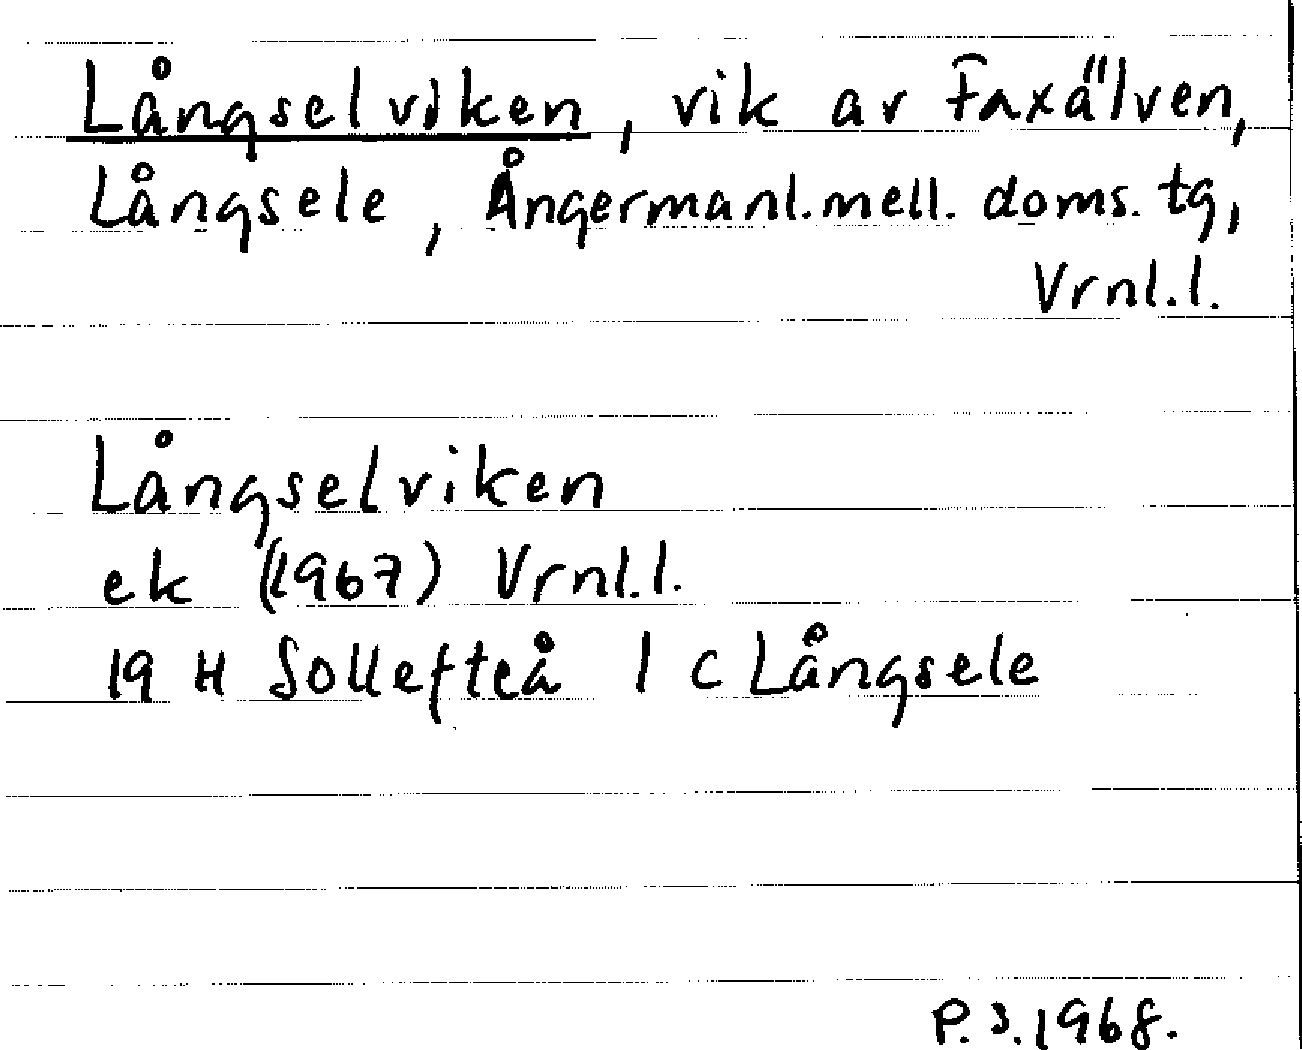 Långselviken, vik av Faxälven,
Långsele, Ångermanl. mell. doms. tg,
Vrnl. l.
Långselviken
ek (1967) Vrnl. l.
19 H Sollefteå 1 c Långsele
P. S. 1968.